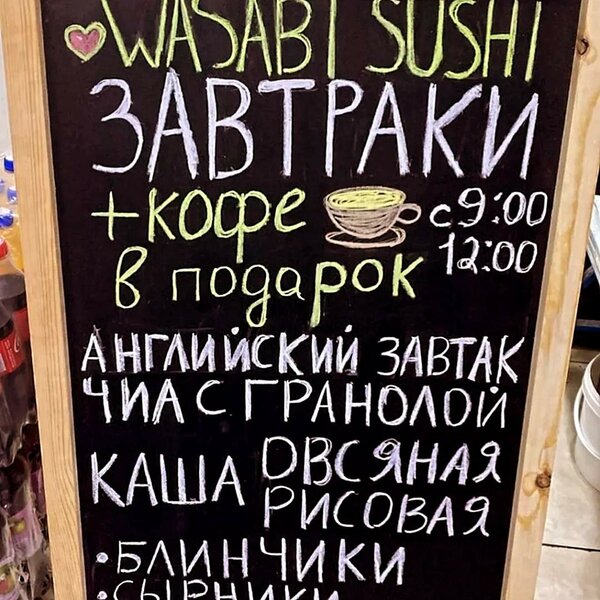 WASABI SUSHI
ЗАВТРАКИ
+кофе с 9:00
в подарок 12:00
АНГЛИЙСКИЙ ЗАВТАК
ЧИА С ГРАНОЛОЙ
КАША ОВСЯНАЯ
РИСОВАЯ
•БЛИНЧИКИ
•СЫРНИКИ